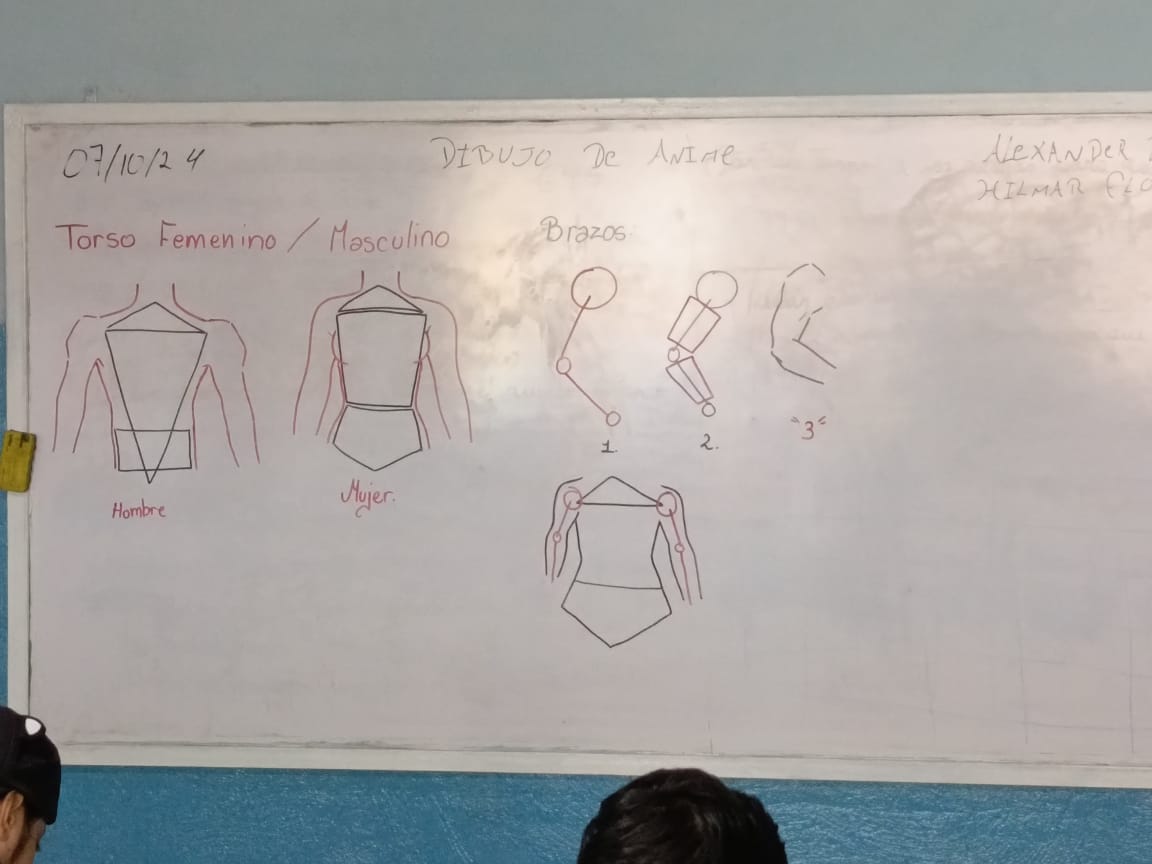 07/10/24
DIBUJO De ANIMe
ALeXANDeR
HILMAR
Torso Femenino / Masculino
Brazos
1.
2.
"3"
Hombre
Mujer.